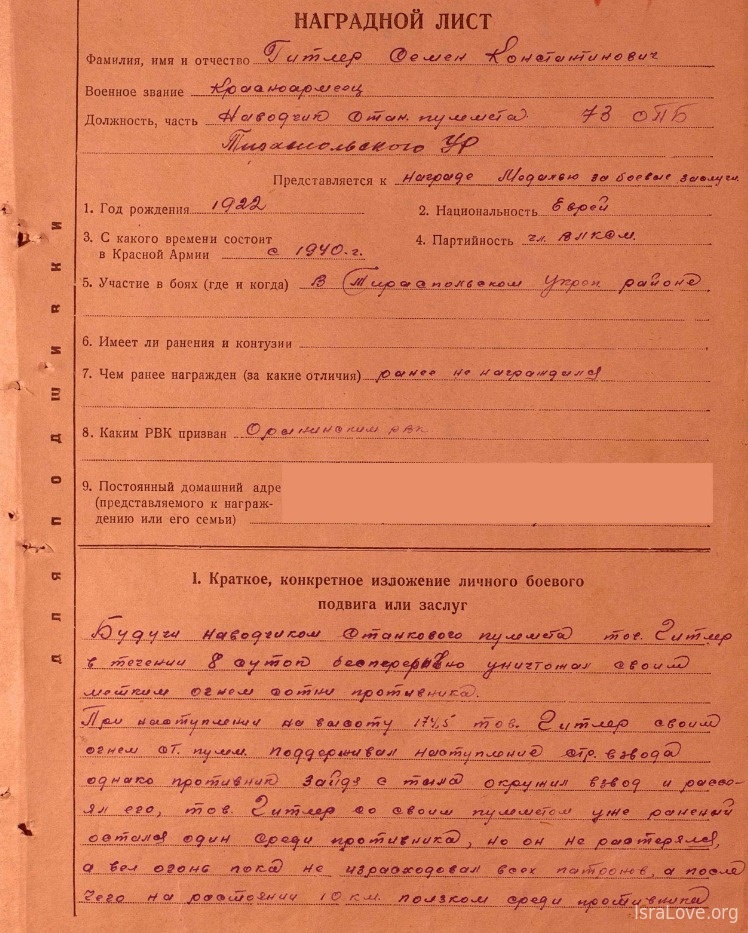 НАГРАДНОЙ ЛИСТ
Фамилия, имя и отчество Гитлер Семен Константинович
Военное звание Красноармеец
Должность, часть Наводчик стан. пулмета 73 ОПБ
Тираспольского УР
Представляется к награде Медалью за боевые заслуги.
1. Год рождения 1922
2. Национальность Еврей
3. С какого времени состоит
в Красной Армии с 1940.г.
4. Партийность чл. ВЛКСМ.
5. Участие в боях (где и когда) В Тираспольском Укреп районе
6. Имеет ли ранения и контузии
7. Чем ранее награжден (за какие отличия) ранее не награждался
8. Каким РВК призван Орынинским рвк
9. Постоянный домашний адре
(представляемого к награж-
дению или его семьи)
I. Краткое, конкретное изложение личного боевого
подвига или заслуг
Будучи наводчиком станкового пулмета тов. Гитлер
в течении 8 суток бесперерывно уничтожал своим
метким огнем сотни противника.
При наступлении на высоту 174,5 тов. Гитлер своим
огнем ст. пулм. поддерживал наступление стр. взвода
однако противник зайдя с тыла окружил взвод и рассе-
ял его, тов. Гитлер со своим пулметом уже раненый
остался один среди противника, но он не растерялся,
а вел огонь пока не израсходовал всех патронов, а после
чего на расстоянии 10 км. ползком среди противника
ДЛЯ ПОДШИВКИ
IsraLove.org